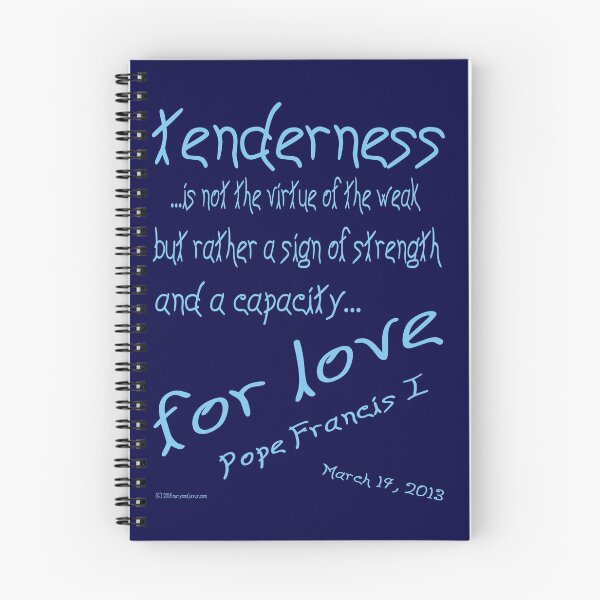 tenderness
...is not the virtue of the weak
but rather a sign of strength
and a capacity...
for love
Pope Francis I
March 14, 2013
(C) 2013 maryandjesus.com